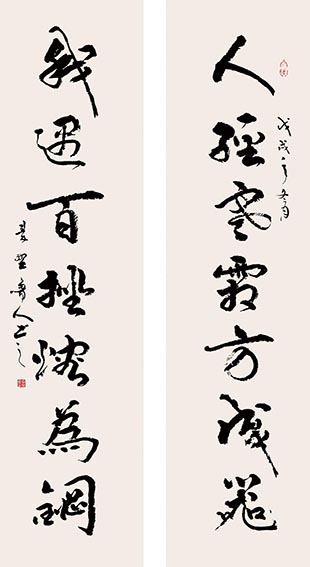 人經寒霜方成器
戊戌之冬月
我遇百挫熔為鋼
人書之